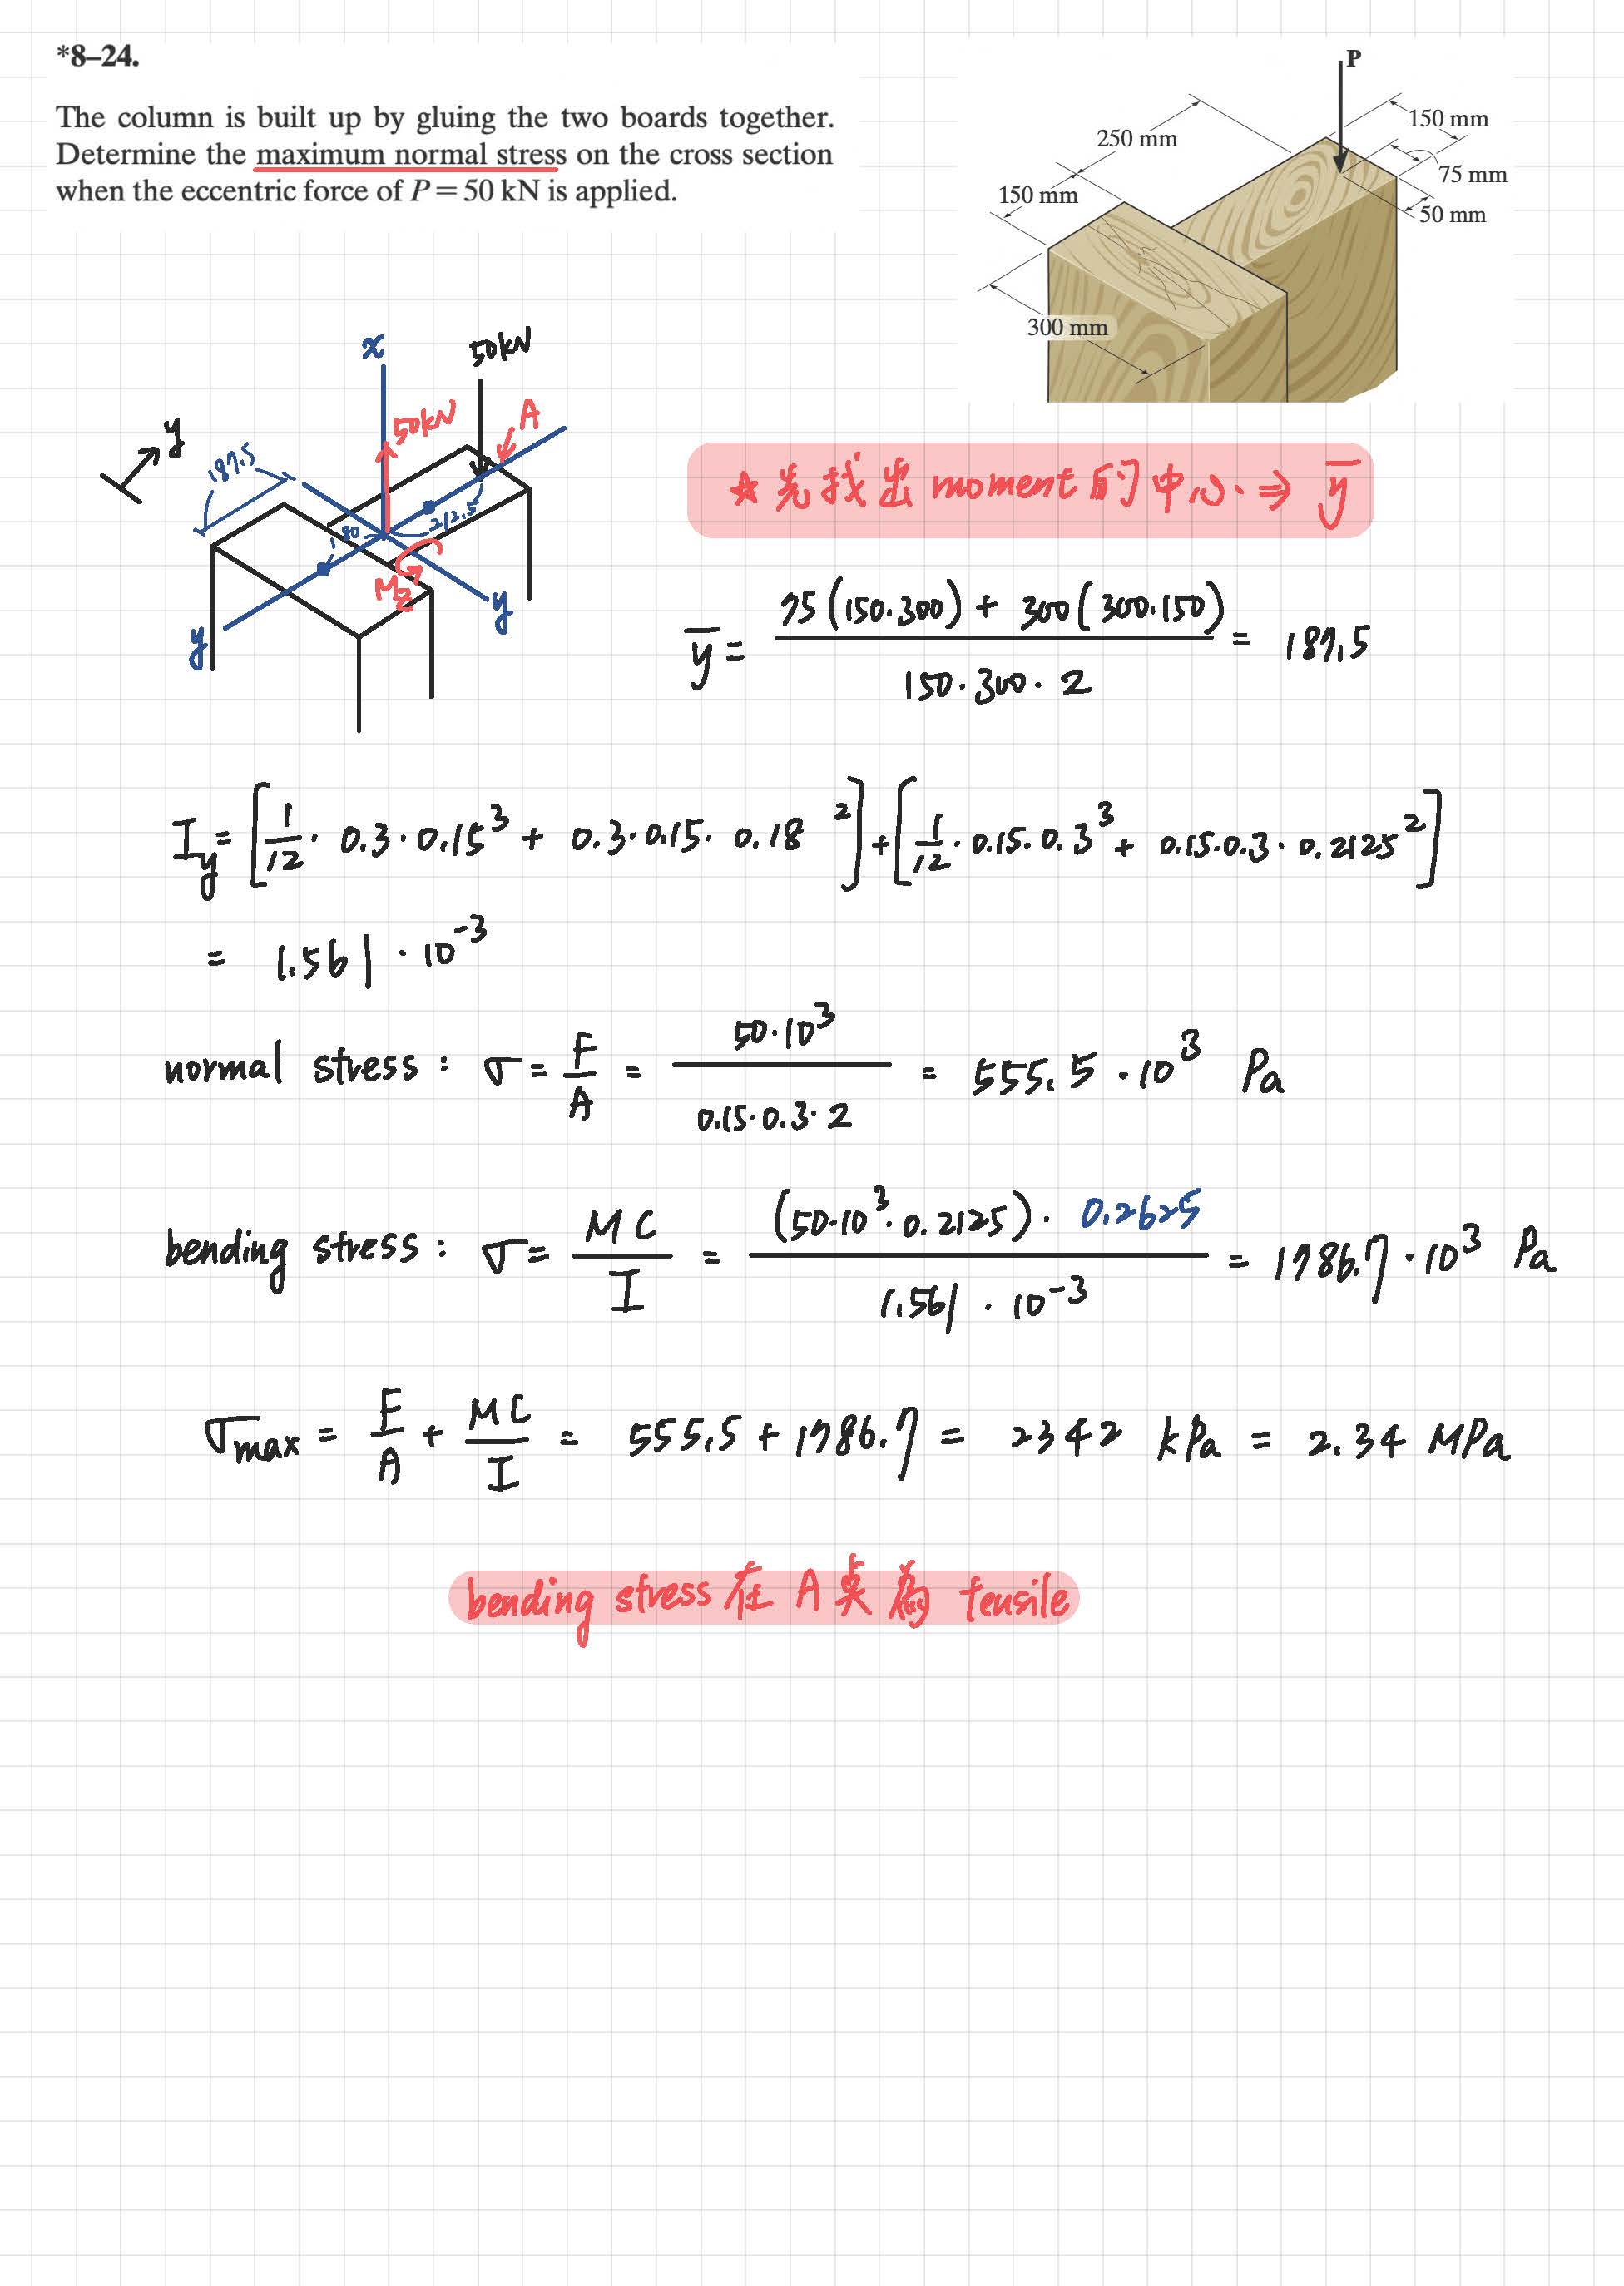 *8–24.
The column is built up by gluing the two boards together.
Determine the maximum normal stress on the cross section
when the eccentric force of P = 50 kN is applied.
P
150 mm
250 mm
75 mm
150 mm
50 mm
300 mm
x
50kN
50kN
A
y
187.5
180
212.5
Mz
y
y
★ 先找出 moment 的中心 ⇒ ȳ
ȳ = 75(150·300) + 300(300·150) / 150·300·2 = 187.5
Iy = [1/12 · 0.3 · 0.15³ + 0.3 · 0.15 · 0.18²] + [1/12 · 0.15 · 0.3³ + 0.15 · 0.3 · 0.2125²]
= 1.561 · 10⁻³
normal stress : σ = F/A = 50·10³ / 0.15·0.3·2 = 555.5 · 10³ Pa
bending stress : σ = MC/I = (50·10³·0.2125) · 0.2625 / 1.561 · 10⁻³ = 1786.7 · 10³ Pa
σmax = F/A + MC/I = 555.5 + 1786.7 = 2342 kPa = 2.34 MPa
bending stress 在 A 点為 tensile